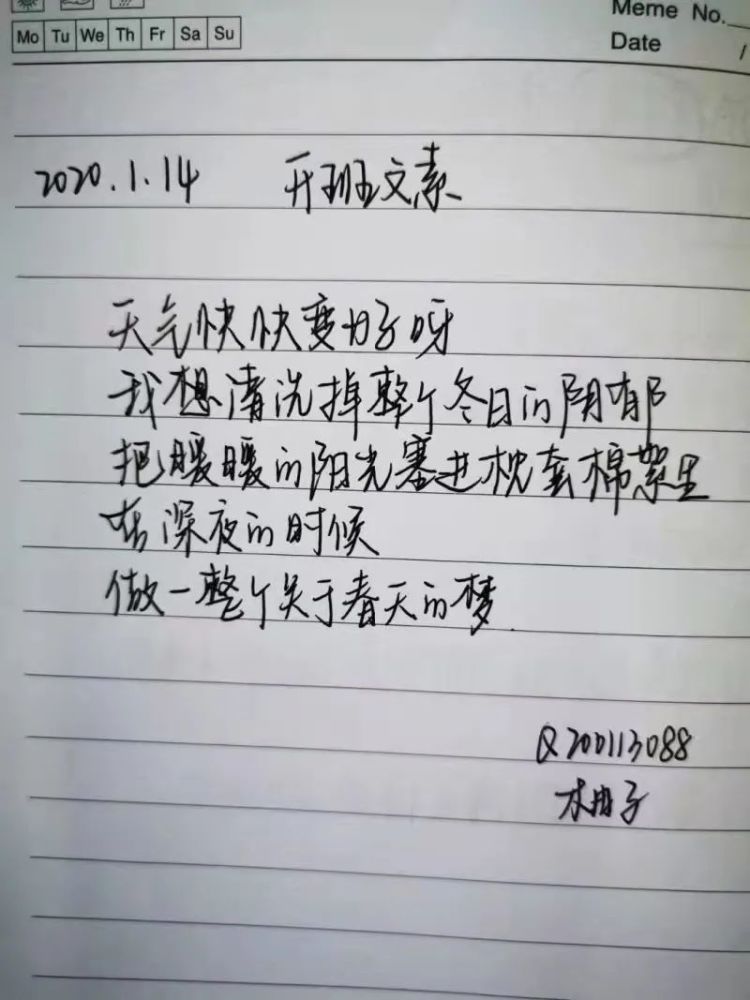 Meme No.
Mo Tu We Th Fr Sa Su
Date /
2020.1.14 开班文素
天气快快变好呀
我想清洗掉整个冬日的阴郁
把暖暖的阳光塞进枕套棉絮里
在深夜的时候
做一整个关于春天的梦.
Q200113088
柚子